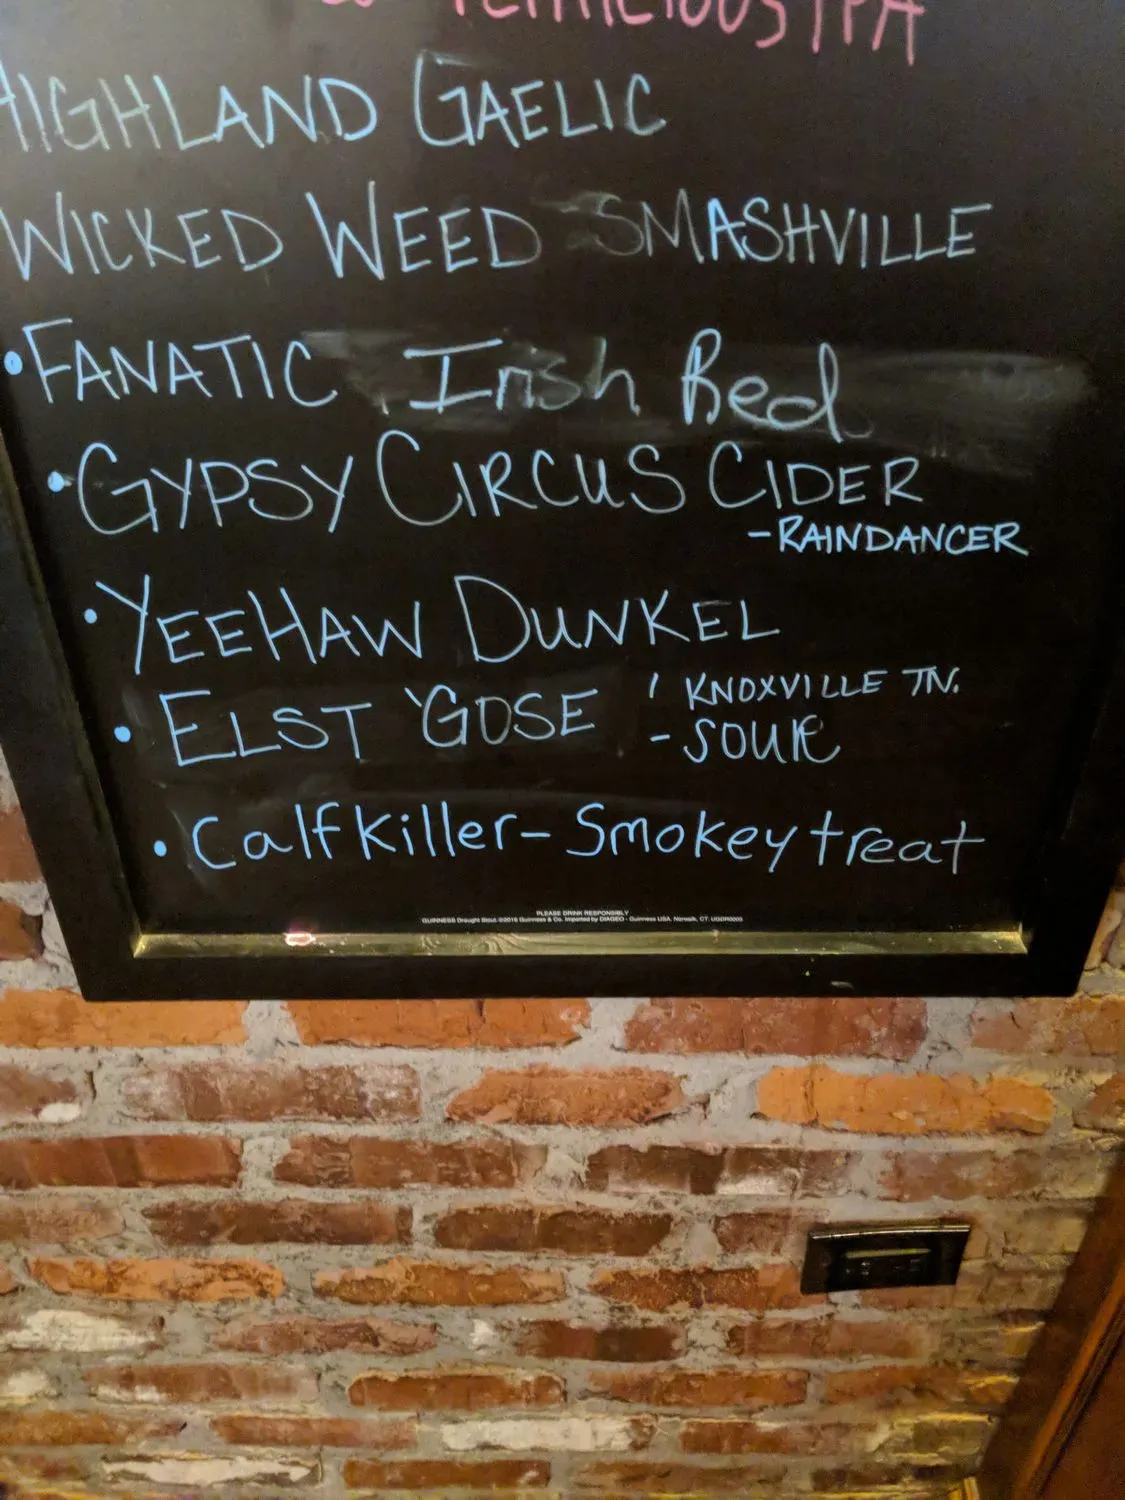 IPA
HIGHLAND GAELIC
WICKED WEED SMASHVILLE
•FANATIC Irish Red
•GYPSY CIRCUS CIDER
-RAINDANCER
•YEEHAW DUNKEL
•ELST GOSE ' KNOXVILLE TN.
-SOUR
•Calfkiller-Smokeytreat
PLEASE DRINK RESPONSIBLY
GUINNESS Draught Stout ©2016 Guinness & Co. Imported by DIAGEO - Guinness USA, Norwalk, CT.